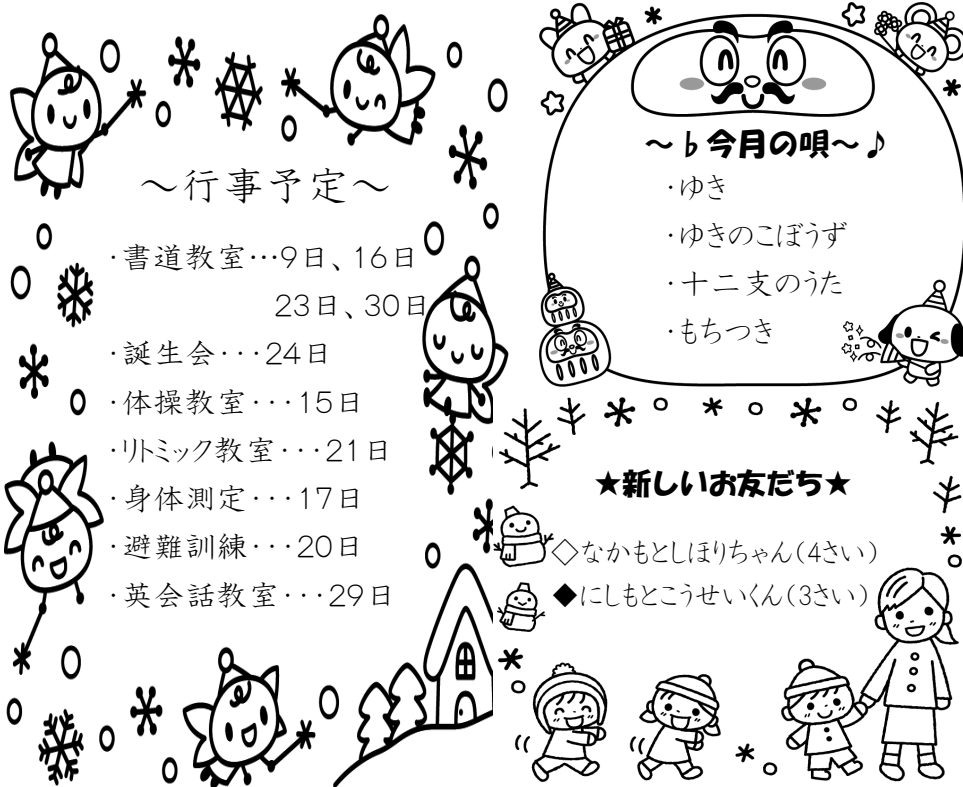 ～行事予定～
・書道教室…9日、16日
23日、30日
・誕生会・・・24日
・体操教室・・・15日
・リトミック教室・・・21日
・身体測定・・・17日
・避難訓練・・・20日
・英会話教室・・・29日
～♭今月の唄～♪
・ゆき
・ゆきのこぼうず
・十二支のうた
・もちつき
★新しいお友だち★
◇なかもとしほりちゃん(4さい)
◆にしもとこうせいくん(3さい)